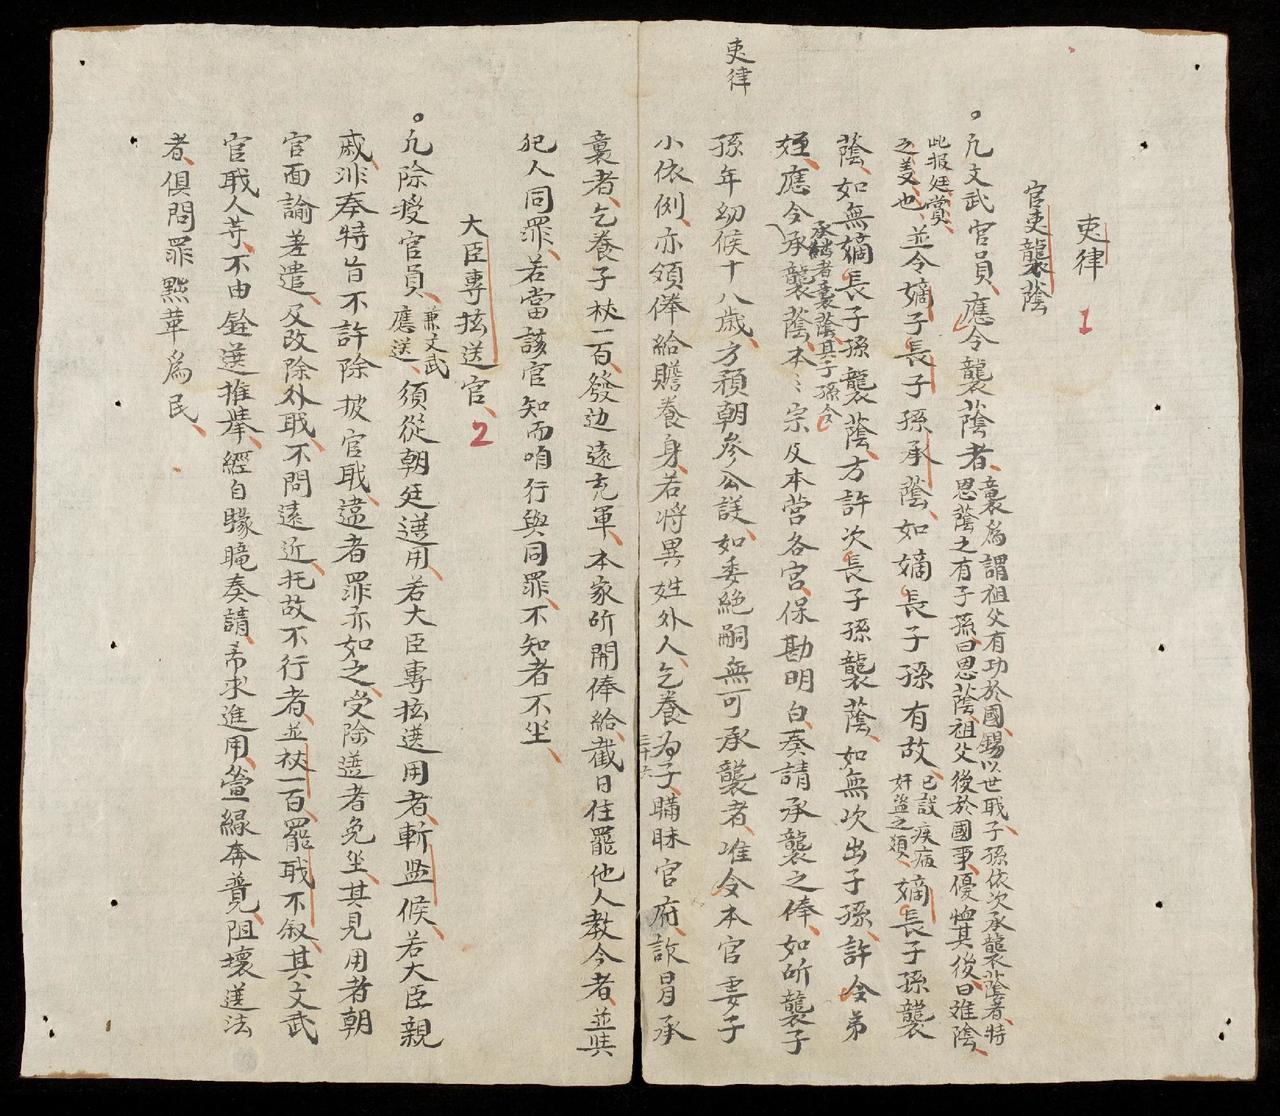 吏律
吏律 1
官吏襲蔭
凡文武官員應令襲蔭者
襲為謂祖父有功於國錫以世职子孫依次承襲蔭者特
恩蔭之有子孫曰恩蔭祖父後於國事優恤其後曰难蔭
此报廷賞
之義也
並令嫡子長子孫承蔭如嫡長子孫有故
已設疾病
奸盜之類
嫡長子孫襲
蔭如無嫡長子孫襲蔭方許次長子孫襲蔭如無次出子孫許令弟
承繼者襲蔭其子孫令
姪應令承襲蔭本〻宗及本营各官保勘明白奏請承襲之俸如所襲子
孫年幼候十八歲方預朝參公設如委絕嗣無可承襲者准令本官妻子
小依例亦頒俸給贍養身若將異姓外人乞養為子瞞昧官府詐冒承
襲者乞養子杖一百發边遠充軍本家所開俸給截日住罷他人教令者並與
犯人同罪若當該官知而咱行與同罪不知者不坐
大臣專拡送官 2
凡除授官員
兼文武
應送
須從朝廷選用若大臣專拡選用者斬监候若大臣親
戚非奉特旨不許除披官职違者罪亦如之受除選者免坐其見用者朝
官面諭差遣及改除外职不問遠近托故不行者並杖一百罷职不叙其文武
官职人等不由銓選推舉經自朦朧奏請希求進用夤緣奔覓阻壞選法
者俱問罪黜革為民